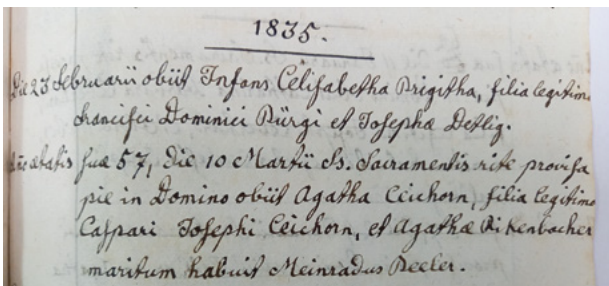 1835.
Die 23 Februarii obiit Infans Elisabetha Brigitha, filia legitima
Francisci Dominici Bürgi et Josepha Betlig.
Anno ætatis suæ 57, Die 10 Martii Ss. Sacramentis rite provisa
pie in Domino obiit Agatha Eichorn, filia legitima
Caspari Josephi Eichorn, et Agathæ Rikenbacher
maritum habuit Meinradus Beeler.